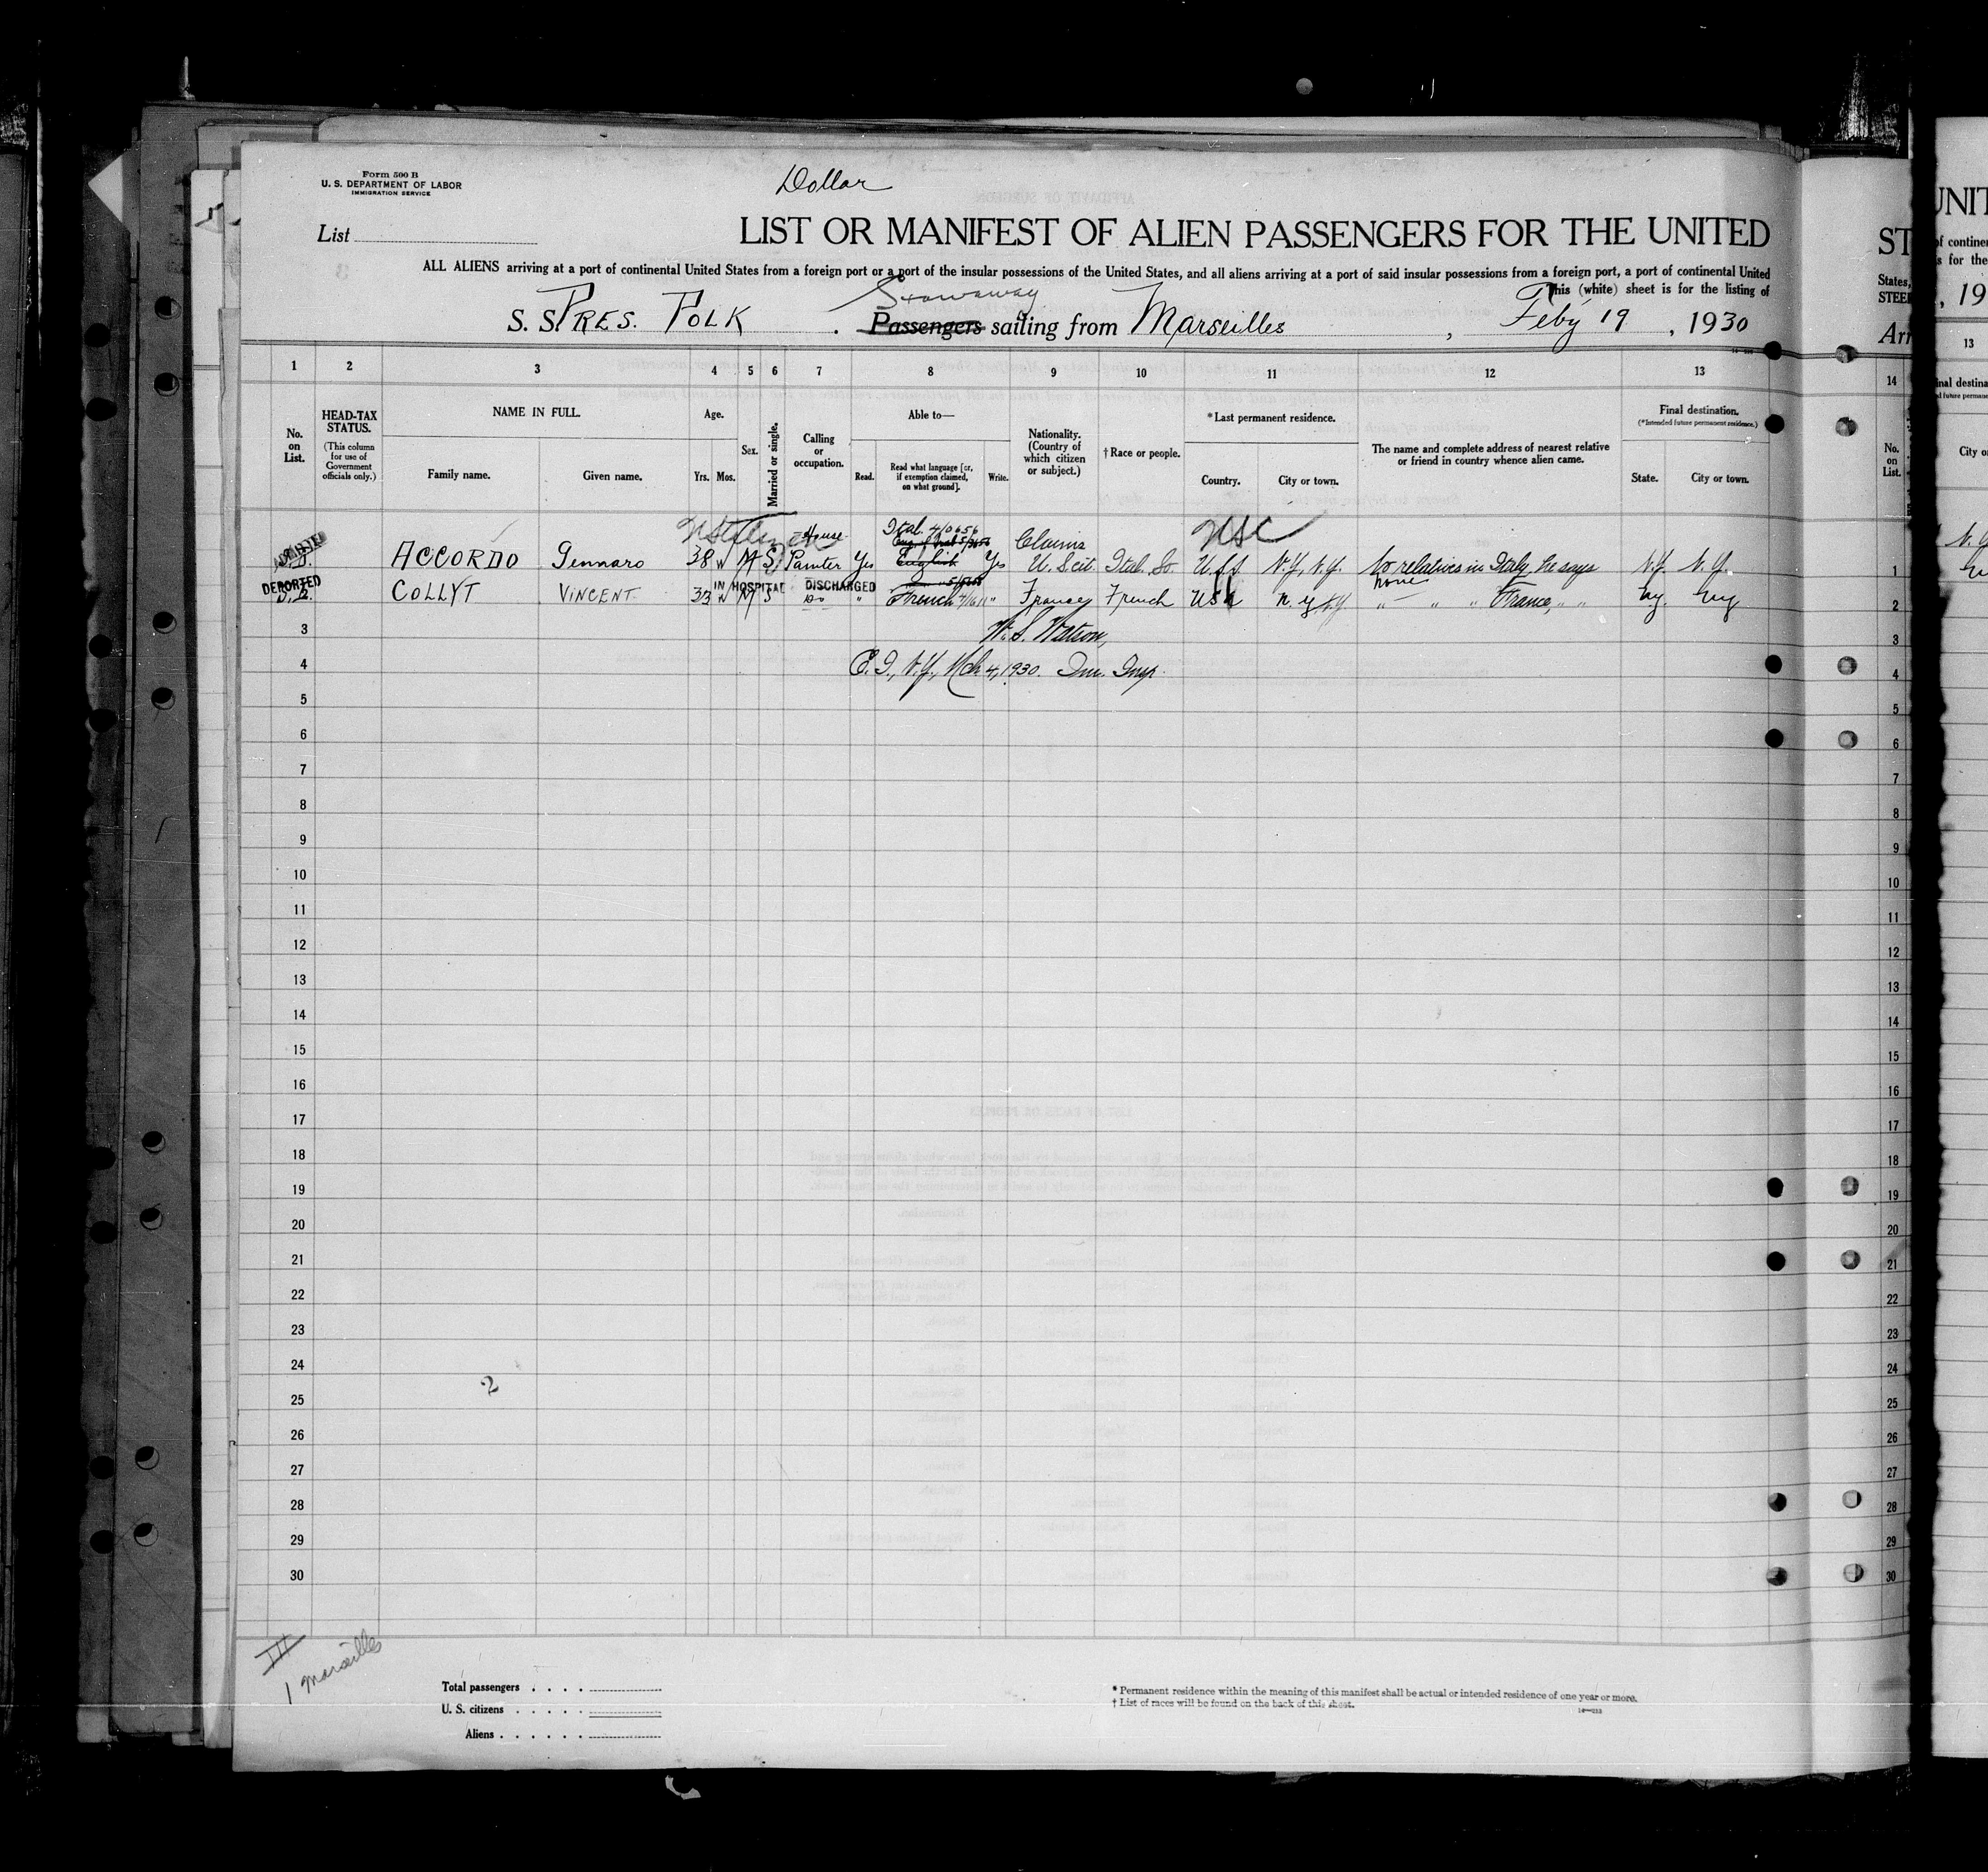 Form 500 B
U. S. DEPARTMENT OF LABOR
IMMIGRATION SERVICE
Dollar
List
LIST OR MANIFEST OF ALIEN PASSENGERS FOR THE UNITED
ALL ALIENS arriving at a port of continental United States from a foreign port or a port of the insular possessions of the United States, and all aliens arriving at a port of said insular possessions from a foreign port, a port of continental United
This (white) sheet is for the listing of
Stowaway
S. S. PRES. POLK . Passengers sailing from Marseilles , Feby 19 , 1930
1 2 3 4 5 6 7 8 9 10 11 12 13
No. on List.
HEAD-TAX STATUS.
(This column for use of Government officials only.)
NAME IN FULL.
Family name. Given name.
Age.
Yrs. Mos.
Sex.
Married or single.
Calling or occupation.
Able to—
Read. Read what language [or, if exemption claimed, on what ground]. Write.
Nationality. (Country of which citizen or subject.)
†Race or people.
*Last permanent residence.
Country. City or town.
The name and complete address of nearest relative or friend in country whence alien came.
Final destination.
(*Intended future permanent residence.)
State. City or town.
House Ital. Claims USC
ACCORDO Gennaro 38 M S Painter Yes English Yes U.S. cit. Ital. So. U.S.A N.Y., N.Y. No relatives in Italy, he says N.Y. N.Y.
DEPORTED IN HOSPITAL DISCHARGED none
COLLYT VINCENT 33 M S Do " French " France French USA N.Y. N.Y. " " " France, " " N.Y. N.Y.
W. S. Watson,
E. I., N.Y., Mch 4, 1930. Imm. Insp.
3
4
5
6
7
8
9
10
11
12
13
14
15
16
17
18
19
20
21
22
23
24
2
25
26
27
28
29
30
III
1 Marseilles
Total passengers
U. S. citizens
Aliens
* Permanent residence within the meaning of this manifest shall be actual or intended residence of one year or more.
† List of races will be found on the back of this sheet.
ST
States,
STEE
Arr
14
No. on List.
1
2
3
4
5
6
7
8
9
10
11
12
13
14
15
16
17
18
19
20
21
22
23
24
25
26
27
28
29
30
UNIT
of contine
s for the
, 19
13
City o
N. Y